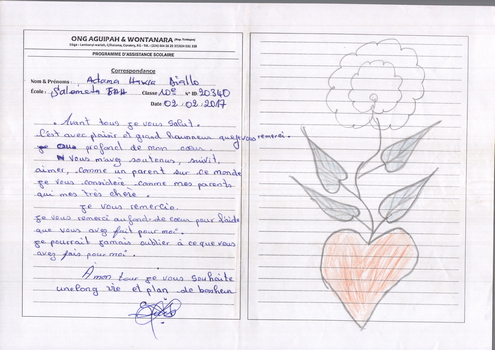 ONG AGUIPAH & WONTANARA
PROGRAMME D'ASSISTANCE SCOLAIRE
Correspondance
Nom & Prénoms: Adama Hawa Diallo
École: Salomata BAH Classe 10e N° ID 20340
Date 02.02.2017
Avant tous je vous salut.
C'est avec plaisir et grand hauneur que je vous remerci.
profond de mon cœurs.
vous m'avez soutenus, suivit,
aimer, comme un parent sur ce monde
je vous considere comme mes parents
qui mes très chère.
je vous remercie.
je vous remeci au fond de cœur pour l'aide
que vous avez fait pour moi.
je pourrait jamais oublier à ce que vous
avez fais pour moi.
A mon tour je vous souhaite
une long vie et plan de bonheur